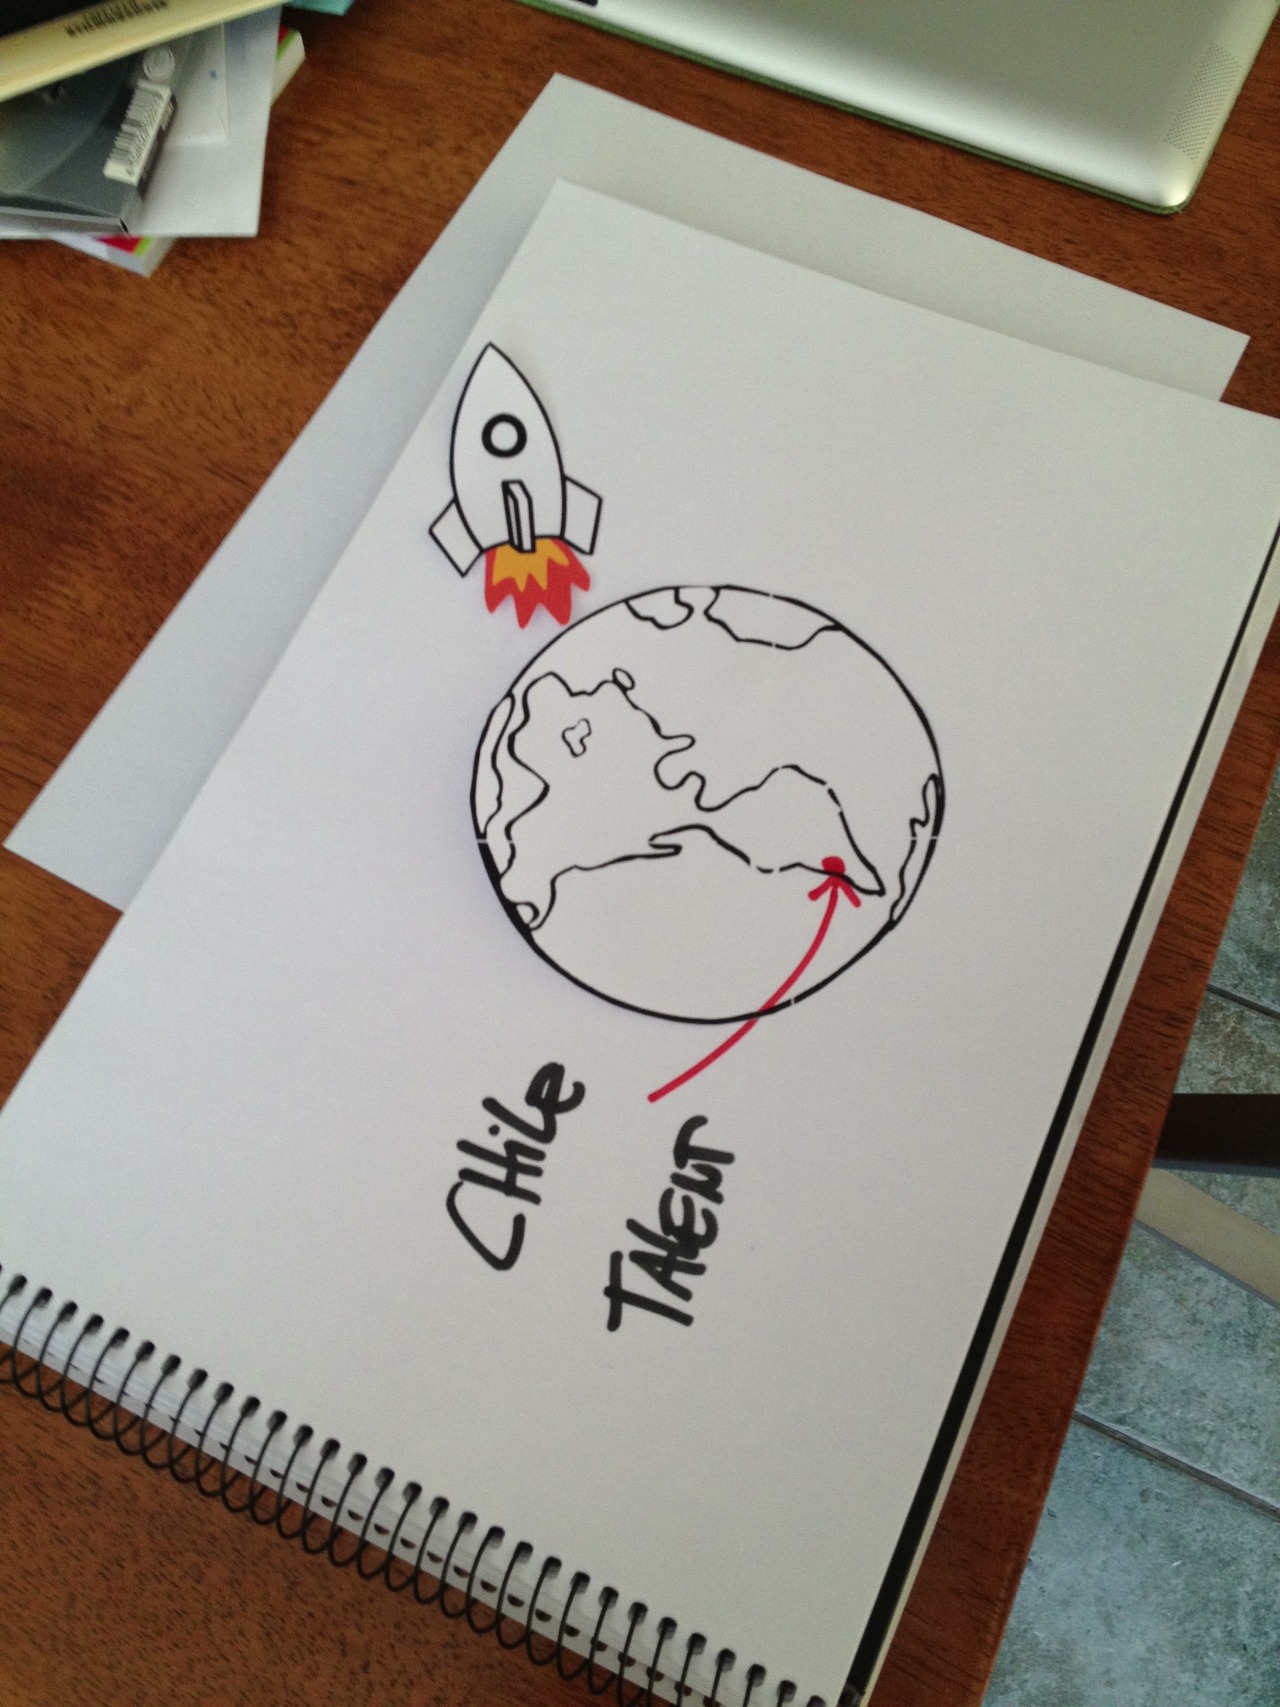 CHiLe
TALENT